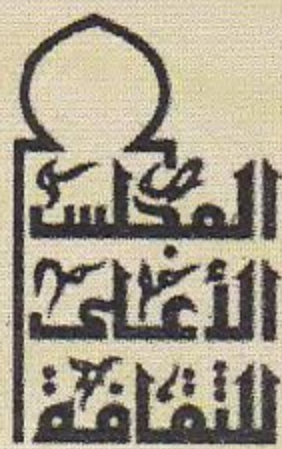 المجلس
الأعلى
للثقافة